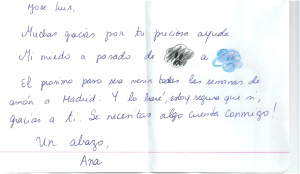 Jose Luis,
Muchas gracias por tu preciosa ayuda.
Mi miedo a pasado de a
El proximo paso sera venir todas las semanas de
a Madrid. Y lo haré, estoy segura que si,
gracias a ti. Si necesitas algo cuenta conmigo!
Un abazo,
Ana